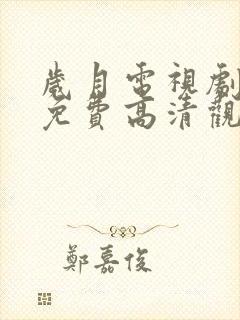 歲月電視劇
免費高清觀
鄭嘉俊